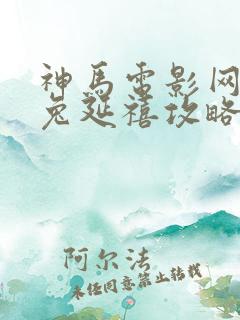 神马電影网
免延禧攻略
阿尔法
未经同意禁止转载